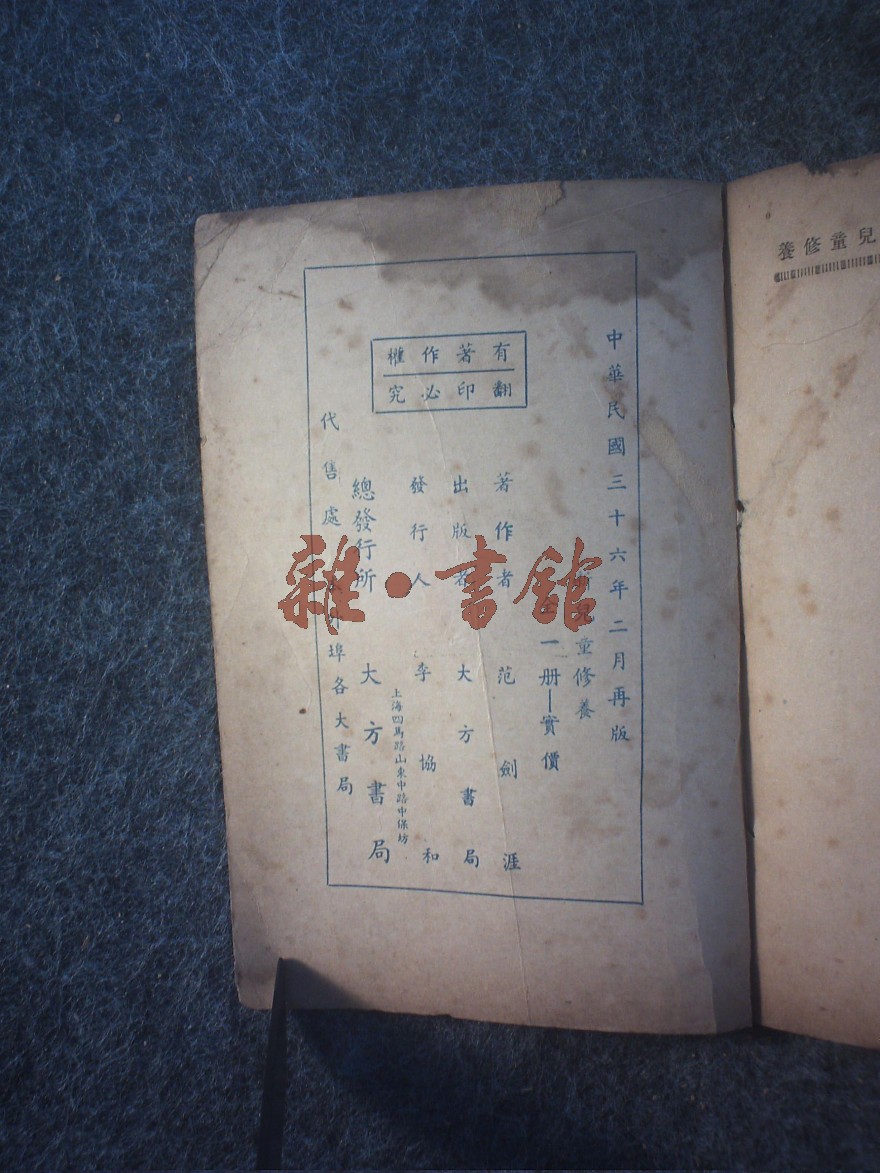 兒童修養
中華民國三十六年二月再版
新兒童修養
全一册—實價
有著作權
翻印必究
著作者 范劍涯
出版者 大方書局
發行人 李協和
上海四馬路山東中路中保坊
總發行所 大方書局
代售處 埠各大書局
雜·書館